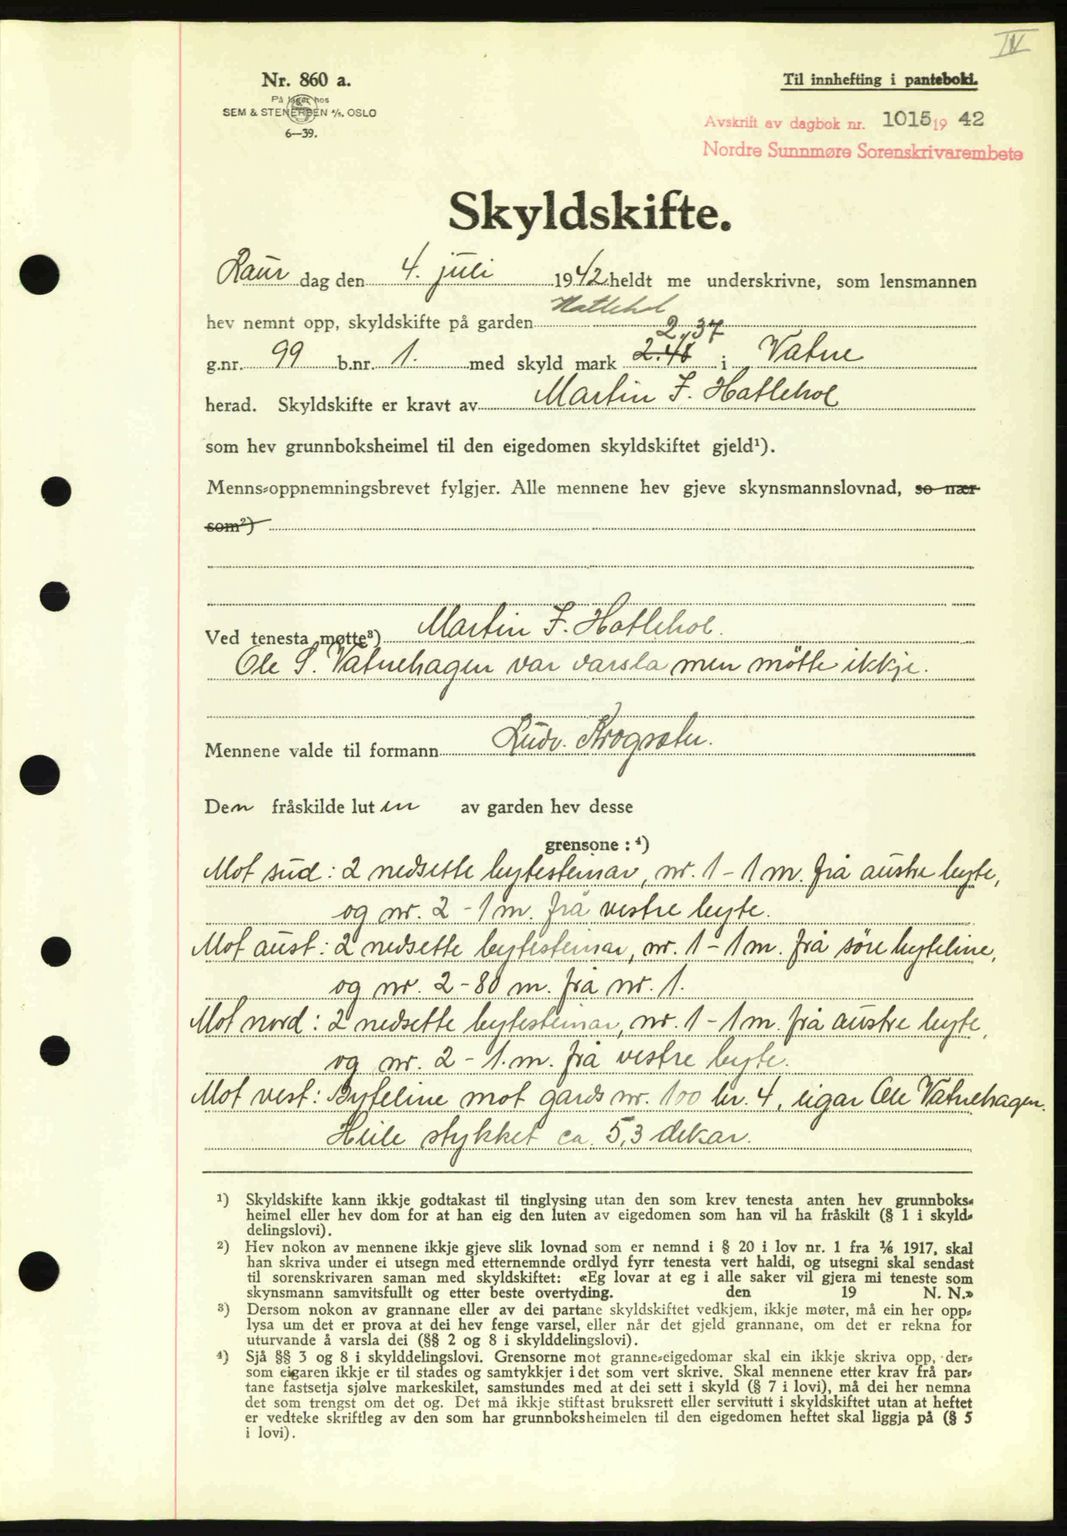 IV
Nr. 860 a.
På lager hos
SEM & STENERSEN A/S. OSLO
6—39.
Til innhefting i pantebok.
Avskrift av dagbok nr. 1015 19 42
Nordre Sunnmøre Sorenskrivarembete
Skyldskifte.
Laur dag den 4. juli 1942 heldt me underskrivne, som lensmannen
hev nemnt opp, skyldskifte på garden Hatlehol
g.nr. 99 b.nr. 1. med skyld mark 2.48 2,37 i Vatne
herad. Skyldskifte er kravt av Martin F. Hatlehol
som hev grunnboksheimel til den eigedomen skyldskiftet gjeld¹).
Menns-oppnemningsbrevet fylgjer. Alle mennene hev gjeve skynsmannslovnad, so nær
som²)
Ved tenesta møtte³) Martin F. Hatlehol.
Ole S. Vatnehagen var varsla men møtte ikkje.
Mennene valde til formann Ludv. Krogsæter.
Den fråskilde luten av garden hev desse
grensone : ⁴)
Mot sud: 2 nedsette bytesteinar, nr. 1 - 1 m. frå austre byte,
og nr. 2 - 1 m. frå vestre byte.
Mot aust: 2 nedsette bytesteinar, nr. 1 - 1 m. frå søre byteline,
og nr. 2 - 80 m. frå nr. 1.
Mot nord: 2 nedsette bytesteinar, nr. 1 - 1 m. frå austre byte,
og nr. 2 - 1. m. frå vestre byte.
Mot vest: Byteline mot gards nr. 100 br. 4, eigar Ole Vatnehagen.
Heile stykket ca. 5,3 dekar.
¹) Skyldskifte kann ikkje godtakast til tinglysing utan den som krev tenesta anten hev grunnboks-
heimel eller hev dom for at han eig den luten av eigedomen som han vil ha fråskilt (§ 1 i skyld-
delingslovi).
²) Hev nokon av mennene ikkje gjeve slik lovnad som er nemnd i § 20 i lov nr. 1 fra 1/6 1917, skal
han skriva under ei utsegn med etternemnde ordlyd fyrr tenesta vert haldi, og utsegni skal sendast
til sorenskrivaren saman med skyldskiftet: «Eg lovar at eg i alle saker vil gjera mi teneste som
skynsmann samvitsfullt og etter beste overtyding. den 19 N. N.»
³) Dersom nokon av grannane eller av dei partane skyldskiftet vedkjem, ikkje møter, må ein her opp-
lysa um det er prova at dei hev fenge varsel, eller når det gjeld grannane, om det er rekna for
uturvande å varsla dei (§§ 2 og 8 i skylddelingslovi).
⁴) Sjå §§ 3 og 8 i skylddelingslovi. Grensorne mot granne-eigedomar skal ein ikkje skriva opp, der-
som eigaren ikkje er til stades og samtykkjer i det som vert skrive. Skal mennene etter krav frå par-
tane fastsetja sjølve markeskilet, samstundes med at dei sett i skyld (§ 7 i lovi), må dei her nemna
det som trengst om det og. Det må ikkje stiftast bruksrett eller servitutt i skyldskiftet utan at heftet
er vedteke skriftleg av den som har grunnboksheimelen til den eigedomen heftet skal liggja på (§ 5
i lovi).